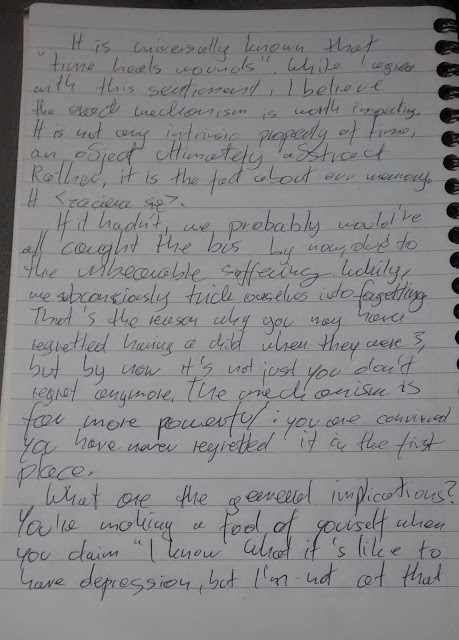 It is universally known that
"time heals wounds". While I agree
with this sentiment, I believe
the exact mechanism is worth inspecting.
It is not any intrinsic property of time,
an object ultimately abstract
Rather, it is the fact about our memory.
It <zaciera się>.
If it hadn't, we probably would've
all caught the bus by now, due to
the unbearable suffering. Luckily,
we subconsciously trick ourselves into forgetting
That's the reason why you may have
regretted having a child when they were 3,
but by now it's not just you don't
regret anymore. The mechanism is
far more powerful: you are convinced
you have never regretted it in the first
place.
What are the general implications?
You're making a fool of yourself when
you claim "I know what it's like to
have depression, but I'm not at that